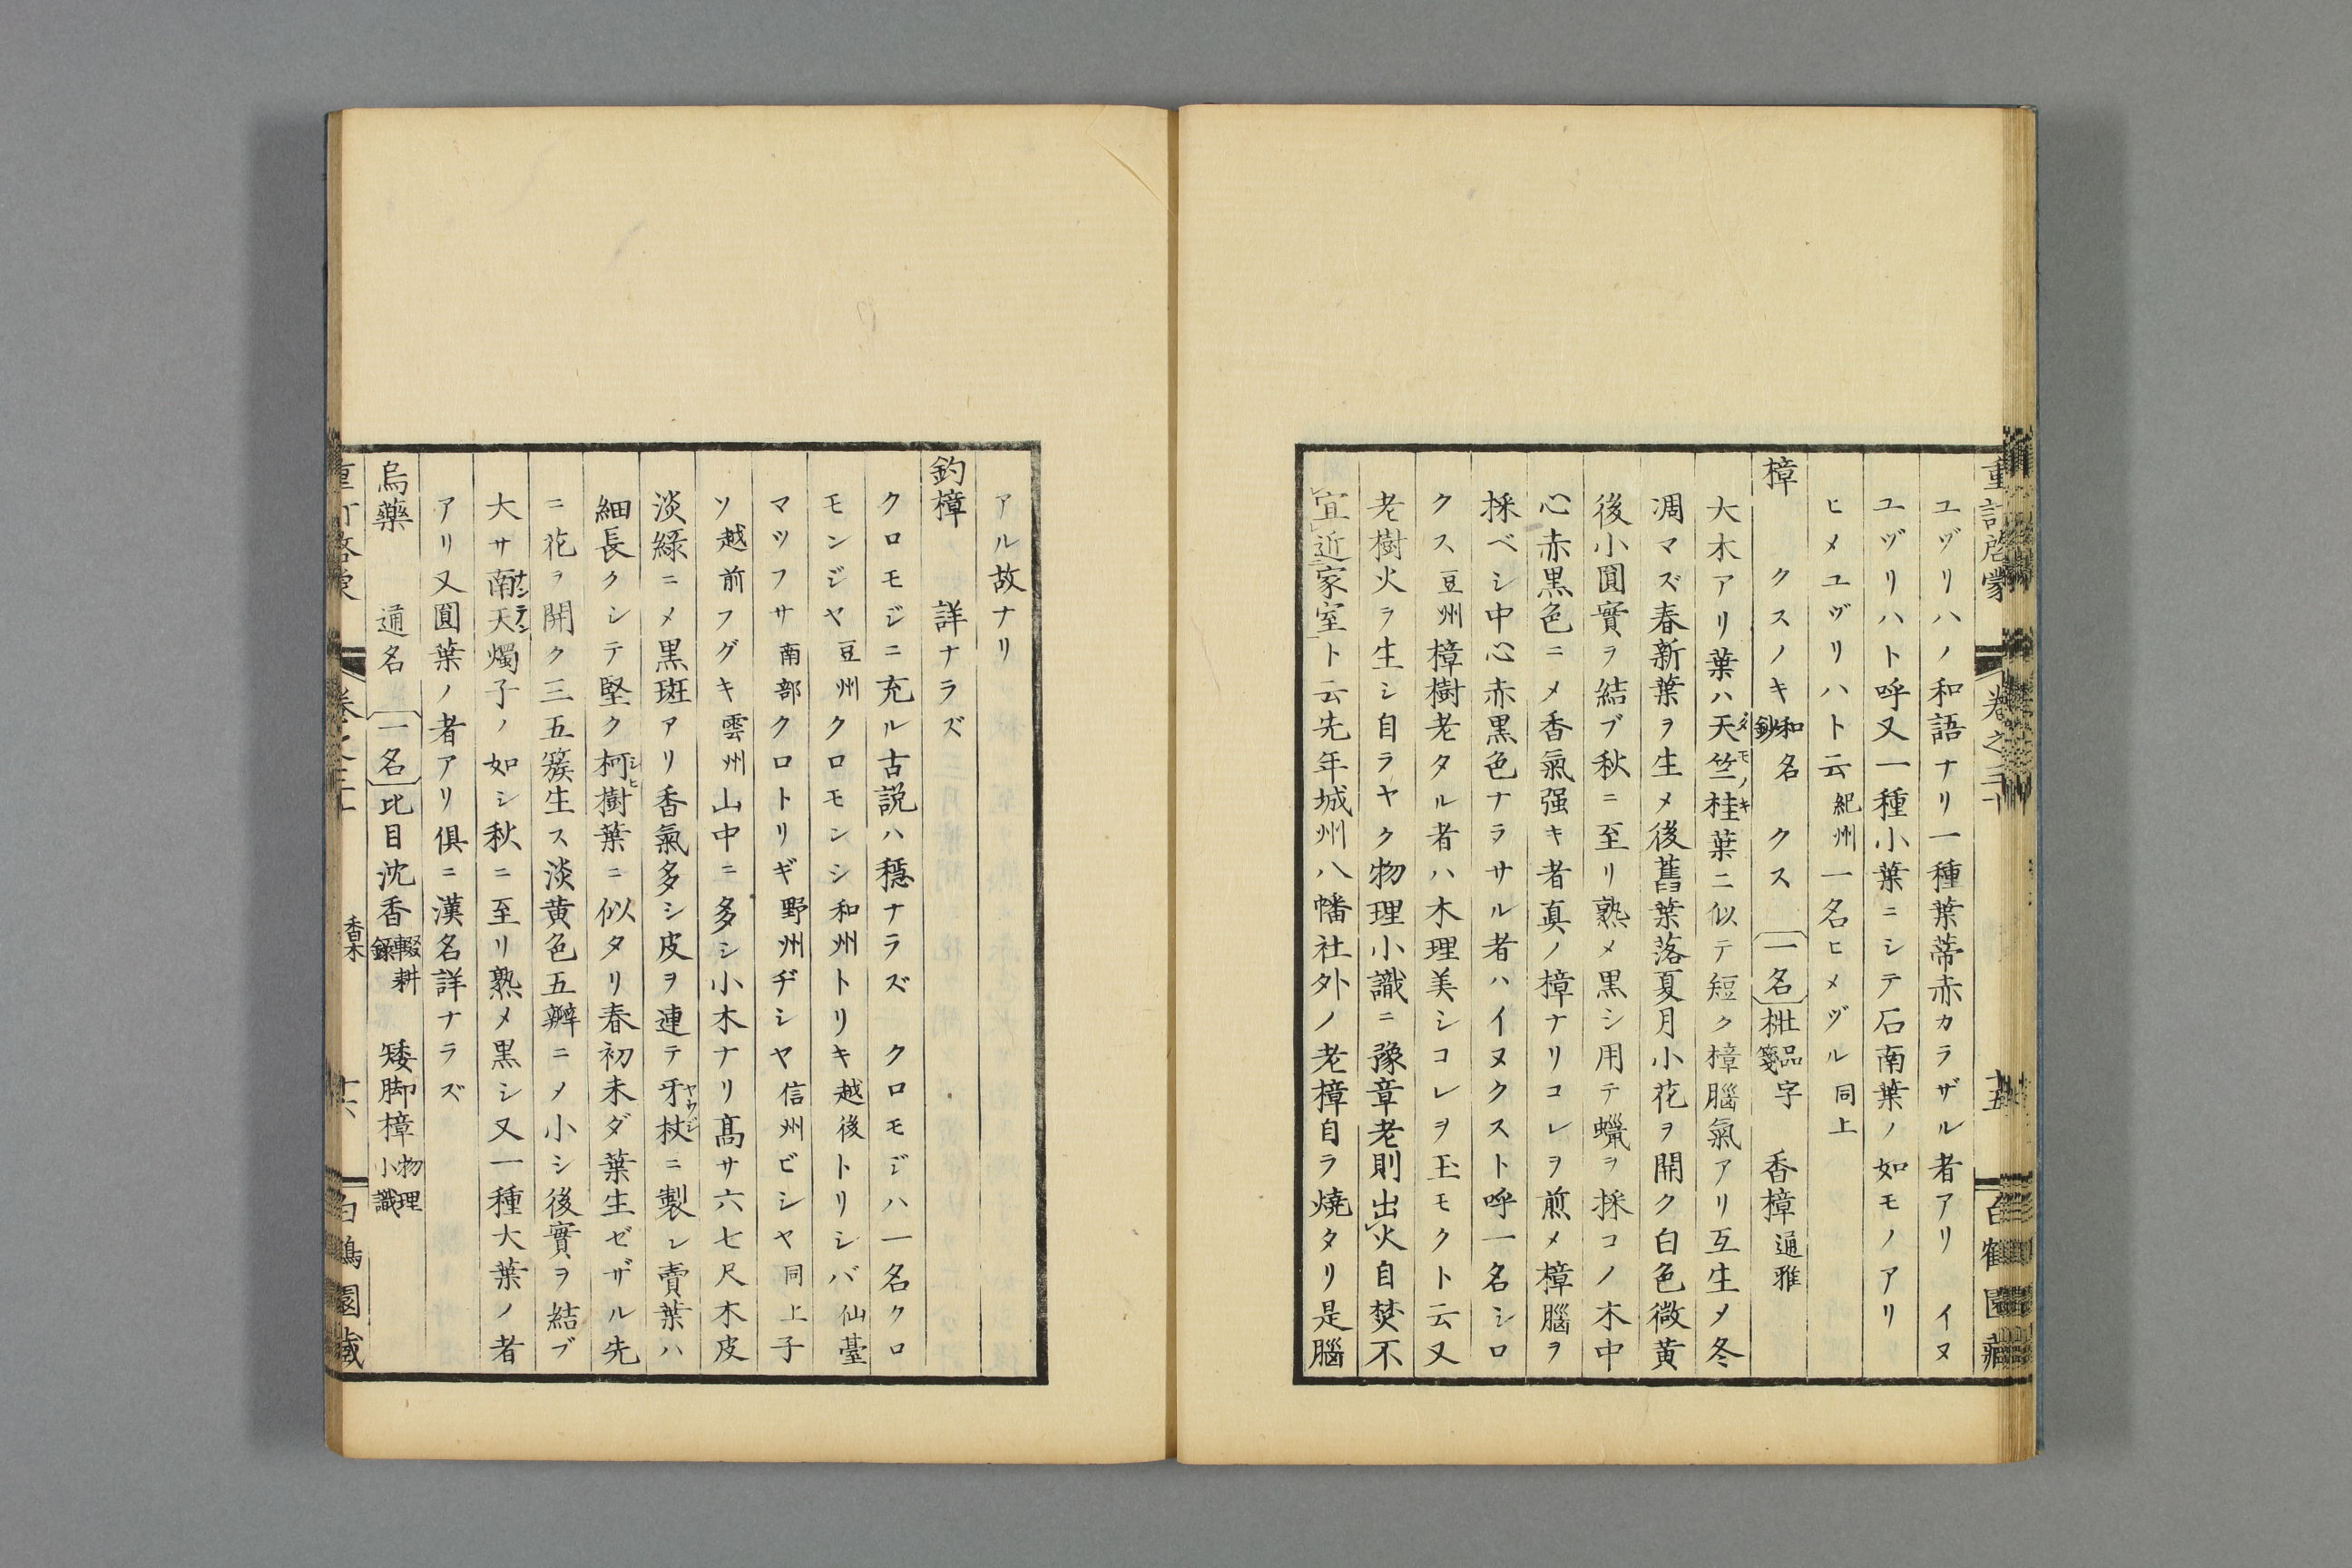 重訂啓蒙 卷之三十 十五 白鶴園藏
ユヅリハノ和語ナリ一種葉蒂赤カラザル者アリ イヌ
ユヅリハト呼又一種小葉ニシテ石南葉ノ如モノアリ
ヒメユヅリハト云紀州一名ヒメヅル同上
樟 クスノキ和名鈔 クス 一名 枇品字箋 香樟通雅
大木アリ葉ハ天竺桂葉ニ似テ短ク樟腦氣アリ互生メ冬
タモノキ
凋マズ春新葉ヲ生メ後舊葉落夏月小花ヲ開ク白色微黄
後小圓實ヲ結ブ秋ニ至リ熟メ黒シ用テ蠟ヲ採コノ木中
心赤黒色ニメ香氣强キ者眞ノ樟ナリコレヲ煎メ樟腦ヲ
採ベシ中心赤黒色ナラサル者ハイヌクスト呼一名シロ
クス豆州樟樹老タル者ハ木理美シコレヲ玉モクト云又
老樹火ヲ生シ自ラヤク物理小識ニ豫章老則出火自焚不
宜近家室ト云先年城州八幡社外ノ老樟自ラ燒タリ是腦
アル故ナリ
釣樟 詳ナラズ
クロモジニ充ル古説ハ穩ナラズ クロモジハ一名クロ
モンジヤ豆州クロモンシ和州トリキ越後トリシバ仙臺
マツフサ南部クロトリギ野州ヂシヤ信州ビシヤ同上子
ソ越前フグキ雲州山中ニ多シ小木ナリ髙サ六七尺木皮
淡綠ニメ黒斑アリ香氣多シ皮ヲ連テ牙杖ニ製シ賣葉ハ
ヤウジ
細長クシテ堅ク柯樹葉ニ似タリ春初未ダ葉生ゼザル先
シヒ
ニ花ヲ開ク三五簇生ス淡黄色五瓣ニメ小シ後實ヲ結ブ
大サ南天燭子ノ如シ秋ニ至リ熟メ黒シ又一種大葉ノ者
ナンテン
アリ又圓葉ノ者アリ俱ニ漢名詳ナラズ
烏藥 通名 一名 比目沈香輟耕錄 矮脚樟物理小識
重訂啓蒙 卷之三十 香木 十六 白鶴園藏